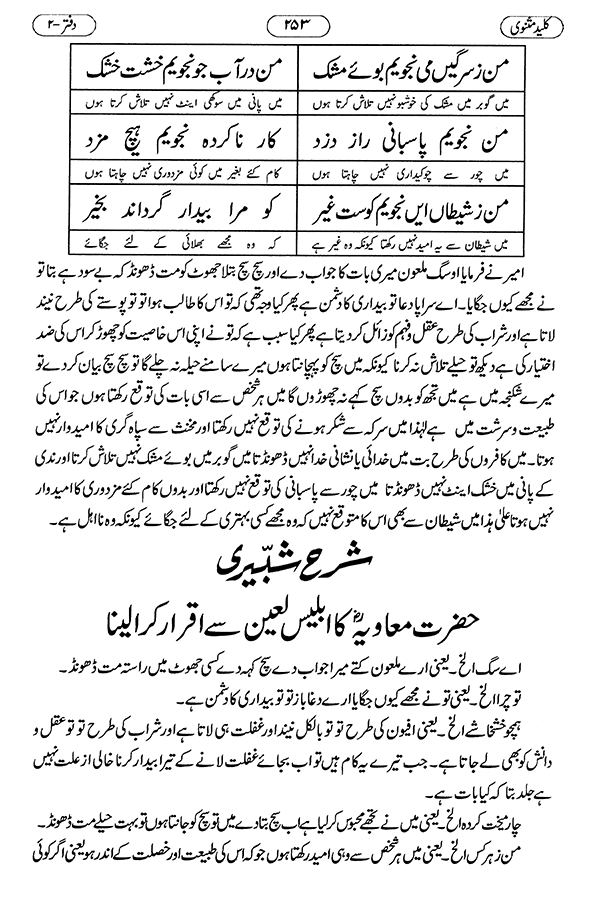 کلید مثنوی ۲۵۳ دفتر -۲
من ز سرگیں می نجویم بوئے مشک من در آب جو نجویم خشت خشک
میں گوبر میں مشک کی خوشبو نہیں تلاش کرتا ہوں میں پانی میں سوکھی اینٹ نہیں تلاش کرتا ہوں
من نجویم پاسبانی راز دزد کار ناکرده نجویم ہیچ مزد
میں چور سے چوکیداری نہیں چاہتا ہوں کام کئے بغیر میں کوئی مزدوری نہیں چاہتا ہوں
من ز شیطاں ایں نجویم کوست غیر کو مرا بیدار گرداند بخیر
میں شیطان سے یہ امید نہیں رکھتا کیونکہ وہ غیر ہے کہ وہ مجھے بھلائی کے لئے جگائے
امیر نے فرمایا او سگ ملعون میری بات کا جواب دے اور سچ سچ بتلا جھوٹ کو مت ڈھونڈ کہ بے سود ہے بتا تو
نے مجھے کیوں جگایا۔ اے سراپا دغا تو بیداری کا دشمن ہے پھر کیا وجہ تھی کہ تو اس کا طالب ہوا تو تو پوستے کی طرح نیند
لاتا ہے اور شراب کی طرح عقل و فہم کو زائل کر دیتا ہے پھر کیا سبب ہے کہ تو نے اپنی اس خاصیت کو چھوڑ کر اس کی ضد
اختیار کی ہے دیکھ تو حیلے تلاش نہ کرنا کیونکہ میں سچ کو پہچانتا ہوں میرے سامنے حیلہ نہ چلے گا تو سچ سچ بیان کر دے تو
میرے شکنجہ میں ہے میں تجھ کو بدوں سچ کہے نہ چھوڑوں گا میں ہر شخص سے اسی بات کی توقع رکھتا ہوں جو اس کی
طبیعت و سرشت میں ہے لہٰذا میں سرکہ سے شکر ہونے کی توقع نہیں رکھتا اور مخنث سے سپاہ گری کا امیدوار نہیں
ہوتا۔ میں کافروں کی طرح بت میں خدائی یا نشانی خدا نہیں ڈھونڈتا میں گوبر میں بوئے مشک نہیں تلاش کرتا اور ندی
کے پانی میں خشک اینٹ نہیں ڈھونڈتا میں چور سے پاسبانی کی توقع نہیں رکھتا اور بدوں کام کئے مزدوری کا امیدوار
نہیں ہوتا علیٰ ہذا میں شیطان سے بھی اس کا متوقع نہیں کہ وہ مجھے کسی بہتری کے لئے جگائے کیونکہ وہ نااہل ہے۔
شرح شبّیری
حضرت معاویہؓ کا ابلیس لعین سے اقرار کرا لینا
اے سگ الخ۔ یعنی ارے ملعون کتے میرا جواب دے سچ کہہ دے کسی جھوٹ میں راستہ مت ڈھونڈ۔
تو چرا الخ۔ یعنی تو نے مجھے کیوں جگایا ارے دغا باز تو تو بیداری کا دشمن ہے۔
ہمچو خشخاشے الخ۔ یعنی افیون کی طرح تو تو بالکل نیند اور غفلت ہی لاتا ہے اور شراب کی طرح تو تو عقل و
دانش کو بھی لے جاتا ہے۔ جب تیرے یہ کام ہیں تو اب بجائے غفلت لانے کے تیرا بیدار کرنا خالی از علت نہیں
ہے جلد بتا کہ کیا بات ہے۔
چار میخت کرده الخ۔ یعنی میں نے تجھے محبوس کر لیا ہے اب سچ بتا دے میں تو سچ کو جانتا ہوں تو بہت حیلے مت ڈھونڈ۔
من ز ہر کس الخ۔ یعنی میں ہر شخص سے وہی امید رکھتا ہوں جو کہ اس کی طبیعت اور خصلت کے اندر ہو یعنی اگر کوئی